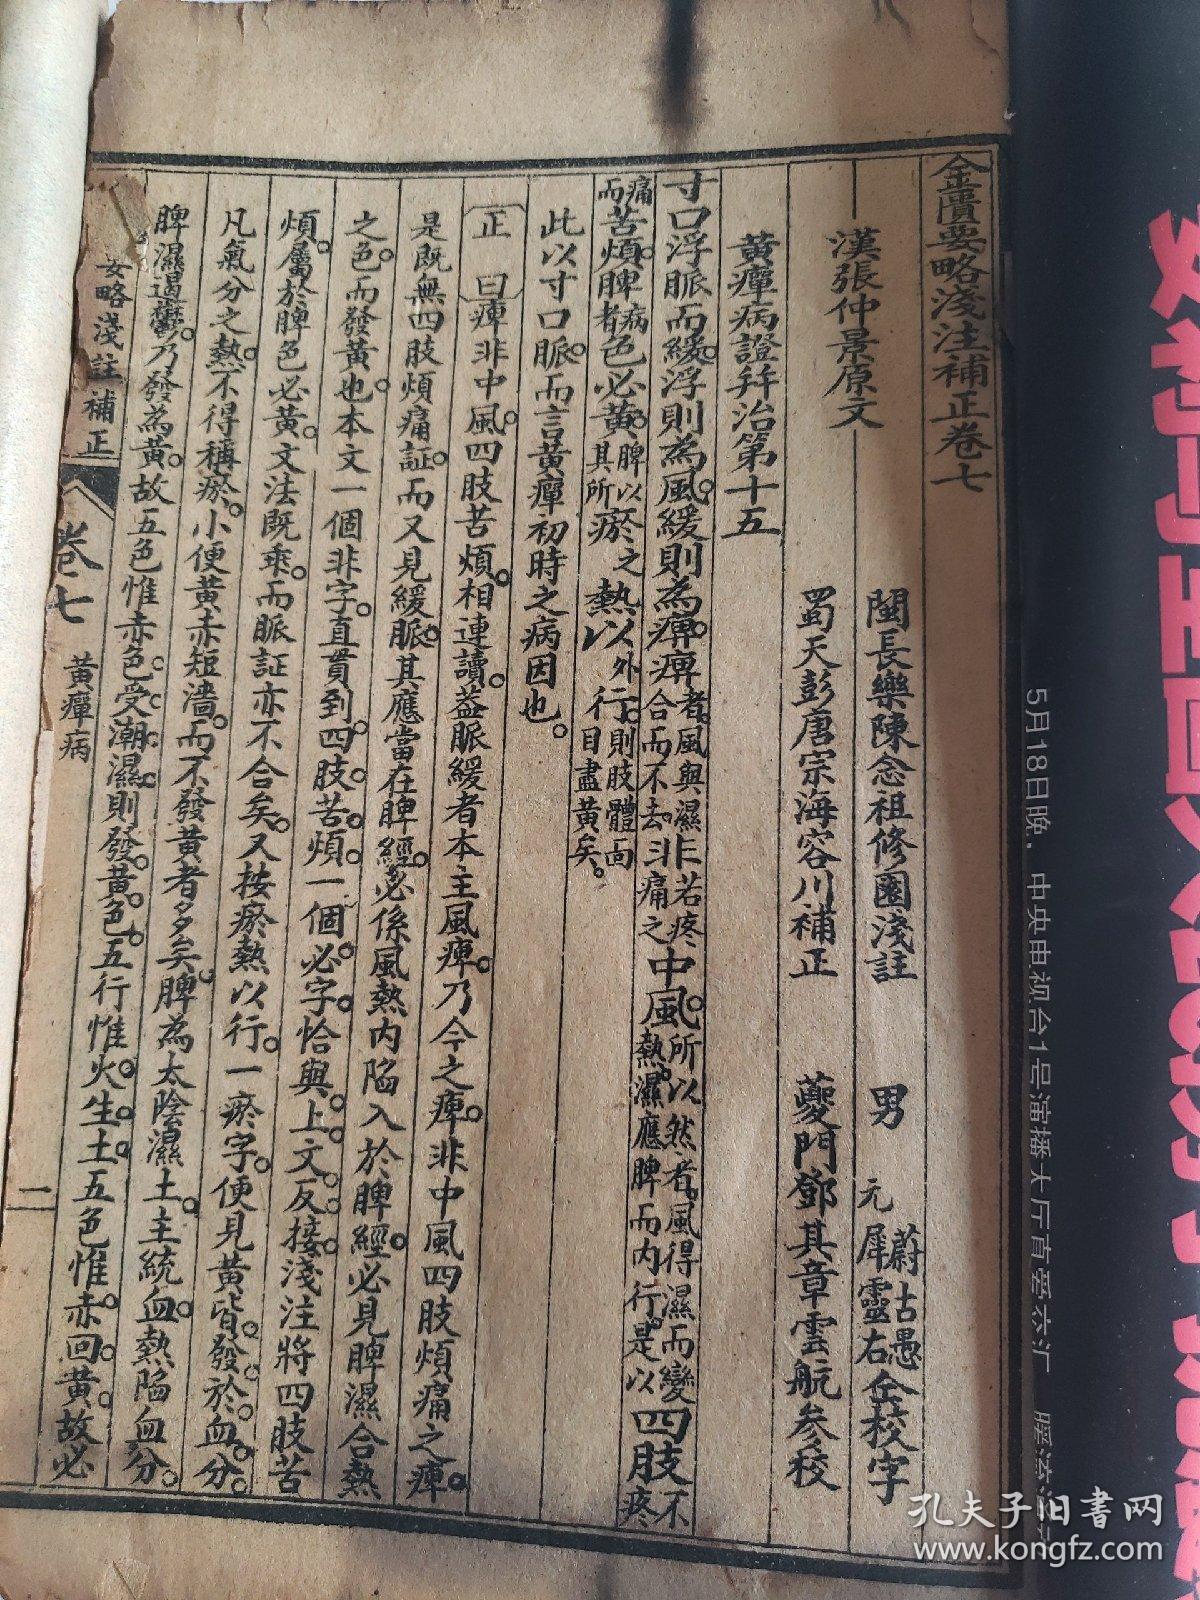 金匱要略淺注補正卷七
漢張仲景原文
閩長樂陳念祖修園淺註
男 元犀靈石 蔚古愚 仝校字
蜀天彭唐宗海容川補正
夔門鄧其章雲航參校
黃癉病證并治第十五
寸口浮脈而緩。浮則為風。緩則為痹。痹者。風與濕合而不去。非若疼痛之中風。所以然者。風得濕而變熱。濕應脾而內行。是以四肢不疼
痛而苦煩。脾病者色必黃。脾以其所瘀之熱以外行。則肢體面目盡黃矣。
此以寸口脈。而言黃癉初時之病因也。
正曰痺非中風。四肢苦煩。相連讀。葢脈緩者本主風痺。乃今之痺。非中風四肢煩痛之痺。
是既無四肢煩痛証。而又見緩脈。其應當在脾經。必係風熱內陷入於脾經。必見脾濕合熱
之色。而發黃也。本文一個非字。直貫到。四肢苦。煩。一個必字。恰與上文反接。淺注將四肢苦
煩。屬於脾色必黃。文法既乖。而脈証亦不合矣。又按瘀熱以行。一瘀字。便見黃皆發於血分。
凡氣分之熱。不得稱瘀。小便黃赤短濇。而不發黃者多矣。脾為太陰濕土。主統血。熱陷血分。
脾濕遏鬱。乃發為黃。故五色惟赤色。受潮濕。則發黃色。五行惟火生土。五色惟赤回黃。故必
要略淺註補正
卷七
黃癉病
二
5月18日晚，中央电视台1号演播大厅
孔夫子旧书网
www.kongfz.com